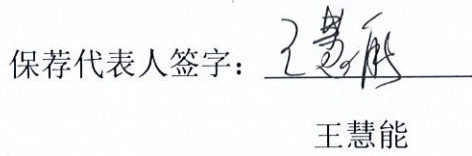 保荐代表人签字：王慧能
王慧能